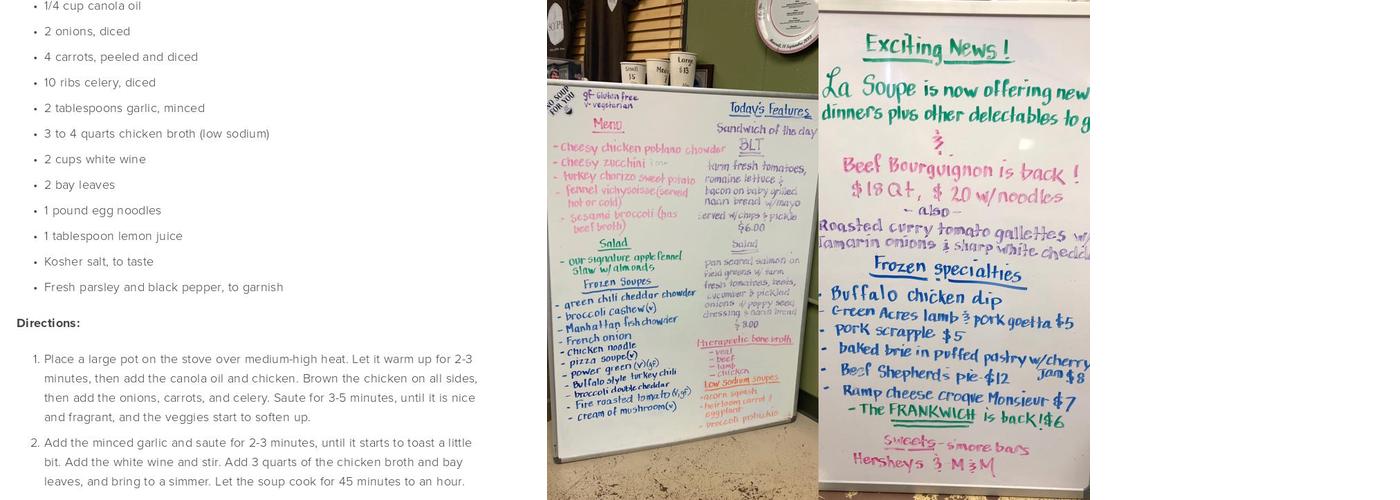 1/4 cup canola oil
2 onions, diced
4 carrots, peeled and diced
10 ribs celery, diced
2 tablespoons garlic, minced
3 to 4 quarts chicken broth (low sodium)
2 cups white wine
2 bay leaves
1 pound egg noodles
1 tablespoon lemon juice
Kosher salt, to taste
Fresh parsley and black pepper, to garnish
Directions:
1. Place a large pot on the stove over medium-high heat. Let it warm up for 2-3
minutes, then add the canola oil and chicken. Brown the chicken on all sides,
then add the onions, carrots, and celery. Saute for 3-5 minutes, until it is nice
and fragrant, and the veggies start to soften up.
2. Add the minced garlic and saute for 2-3 minutes, until it starts to toast a little
bit. Add the white wine and stir. Add 3 quarts of the chicken broth and bay
leaves, and bring to a simmer. Let the soup cook for 45 minutes to an hour.
Small
15
Large
$13
NO SOUP
FOR YOU
gf- Gluten free
v- vegetarian
Menu
- Cheesy chicken poblano chowder
- cheesy zucchini
- turkey chorizo sweet potato
- fennel vichysoisse (served
hot or cold)
- Sesame broccoli (has
beef broth)
Salad
- our signature apple fennel
slaw w/almonds
Frozen Soupes
- green chili cheddar chowder
- broccoli cashew (v)
- Manhattan fish chowder
- French onion
- Chicken noodle
- pizza soupe (v)
- power green (v)(gf)
- Buffalo style turkey chili
- broccoli double cheddar
- Fire roasted tomato (v, gf)
- cream of mushroom (v)
Today's Features
Sandwich of the day
BLT
farm fresh tomatoes,
romaine lettuce &
bacon on baby grilled
naan bread w/mayo
served w/chips & pickle
$6.00
Salad
pan seared salmon on
field greens w/ farm
fresh tomatoes, beets,
cucumber & pickled
onions w/ poppy seed
dressing & naan bread
$8.00
Therapeutic bone broth
- veal
- beef
- lamb
- chicken
Low Sodium soupes
- acorn squash
- heirloom carrot &
eggplant
- broccoli pistachio
Exciting News!
La Soupe is now offering new
dinners plus other delectables to g
&
Beef Bourguignon is back!
$18 Qt, $ 20 w/noodles
- also -
Roasted curry tomato gallettes w/
Tamarin onions & sharp white chedda
Frozen specialties
- Buffalo chicken dip
- Green Acres lamb & pork goetta $5
- pork scrapple $5
- baked brie in puffed pastry w/cherry
Jam $8
- Beef Shepherds pie $12
- Ramp cheese croque Monsieur $7
- The FRANKWICH is back! $6
Sweets - s'more bars
Hersheys & M&M